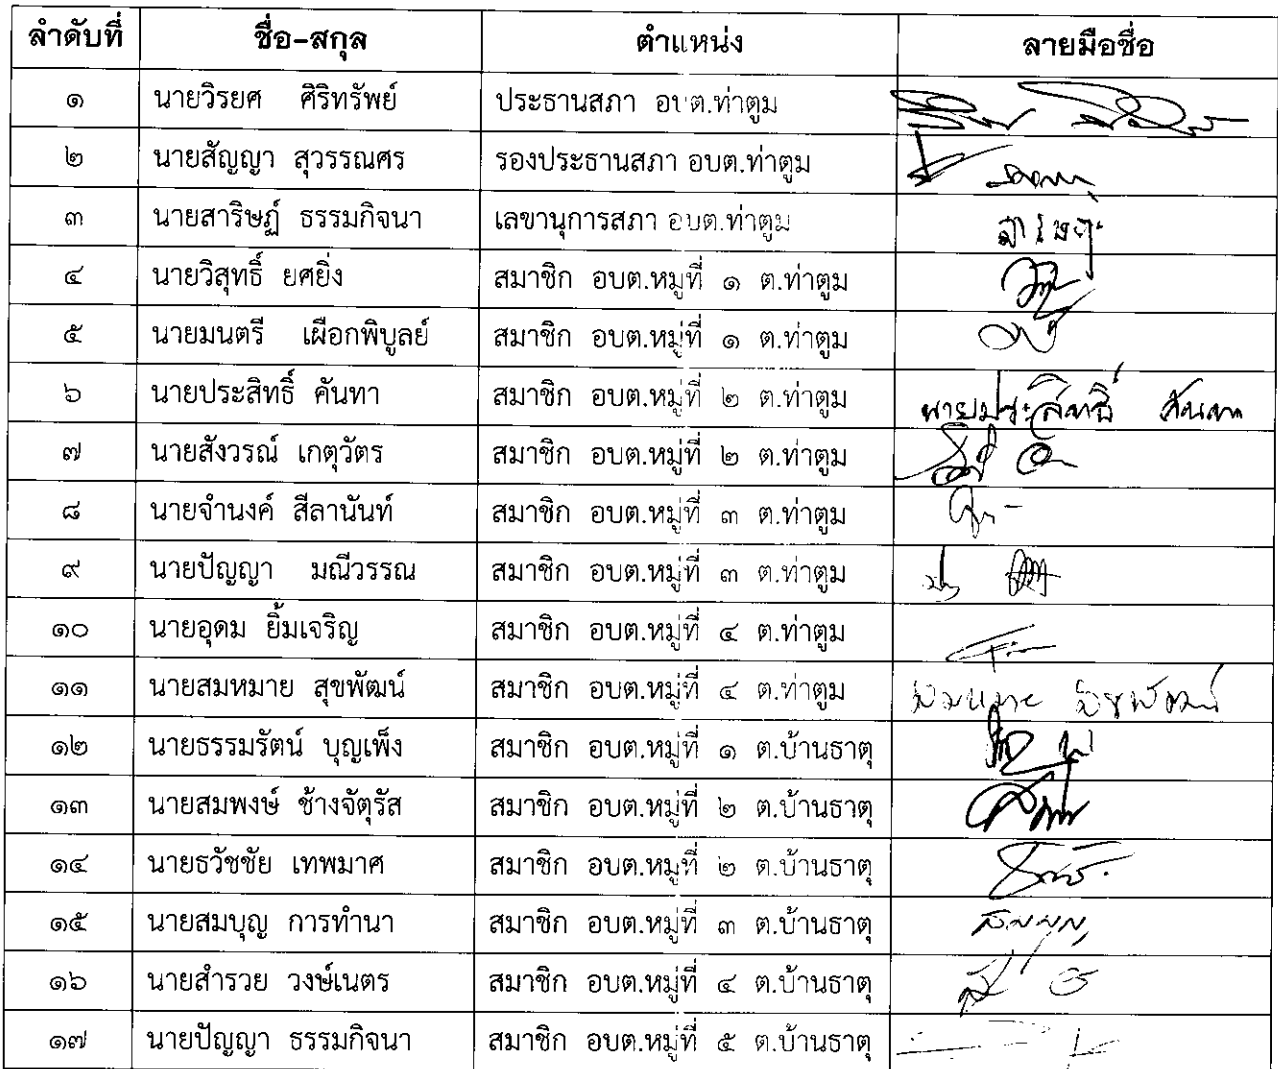 ลำดับที่ ชื่อ-สกุล ตำแหน่ง ลายมือชื่อ
๑ นายวิรยศ ศิริทรัพย์ ประธานสภา อบต.ท่าตูม
๒ นายสัญญา สุวรรณศร รองประธานสภา อบต.ท่าตูม
๓ นายสาริษฏ์ ธรรมกิจนา เลขานุการสภา อบต.ท่าตูม
๔ นายวิสุทธิ์ ยศยิ่ง สมาชิก อบต.หมู่ที่ ๑ ต.ท่าตูม
๕ นายมนตรี เผือกพิบูลย์ สมาชิก อบต.หมู่ที่ ๑ ต.ท่าตูม
๖ นายประสิทธิ์ คันทา สมาชิก อบต.หมู่ที่ ๒ ต.ท่าตูม นายประสิทธิ์ คันทา
๗ นายสังวรณ์ เกตุวัตร สมาชิก อบต.หมู่ที่ ๒ ต.ท่าตูม
๘ นายจำนงค์ สีลานันท์ สมาชิก อบต.หมู่ที่ ๓ ต.ท่าตูม
๙ นายปัญญา มณีวรรณ สมาชิก อบต.หมู่ที่ ๓ ต.ท่าตูม
๑๐ นายอุดม ยิ้มเจริญ สมาชิก อบต.หมู่ที่ ๔ ต.ท่าตูม
๑๑ นายสมหมาย สุขพัฒน์ สมาชิก อบต.หมู่ที่ ๔ ต.ท่าตูม สมหมาย สุขพัฒน์
๑๒ นายธรรมรัตน์ บุญเพ็ง สมาชิก อบต.หมู่ที่ ๑ ต.บ้านธาตุ
๑๓ นายสมพงษ์ ช้างจัตุรัส สมาชิก อบต.หมู่ที่ ๒ ต.บ้านธาตุ
๑๔ นายธวัชชัย เทพมาศ สมาชิก อบต.หมู่ที่ ๒ ต.บ้านธาตุ
๑๕ นายสมบุญ การทำนา สมาชิก อบต.หมู่ที่ ๓ ต.บ้านธาตุ สมบุญ
๑๖ นายสำรวย วงษ์เนตร สมาชิก อบต.หมู่ที่ ๔ ต.บ้านธาตุ
๑๗ นายปัญญา ธรรมกิจนา สมาชิก อบต.หมู่ที่ ๕ ต.บ้านธาตุ